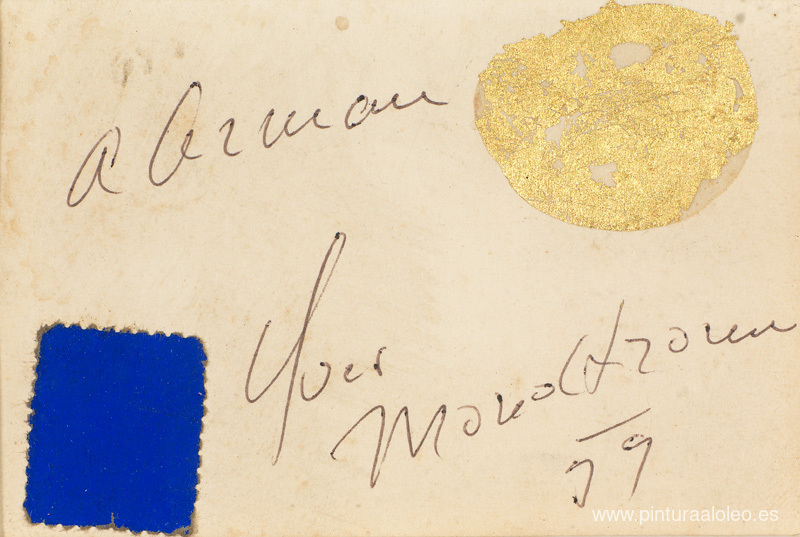 a Arman
Yves
Monochrome
59
www.pinturaaloleo.es